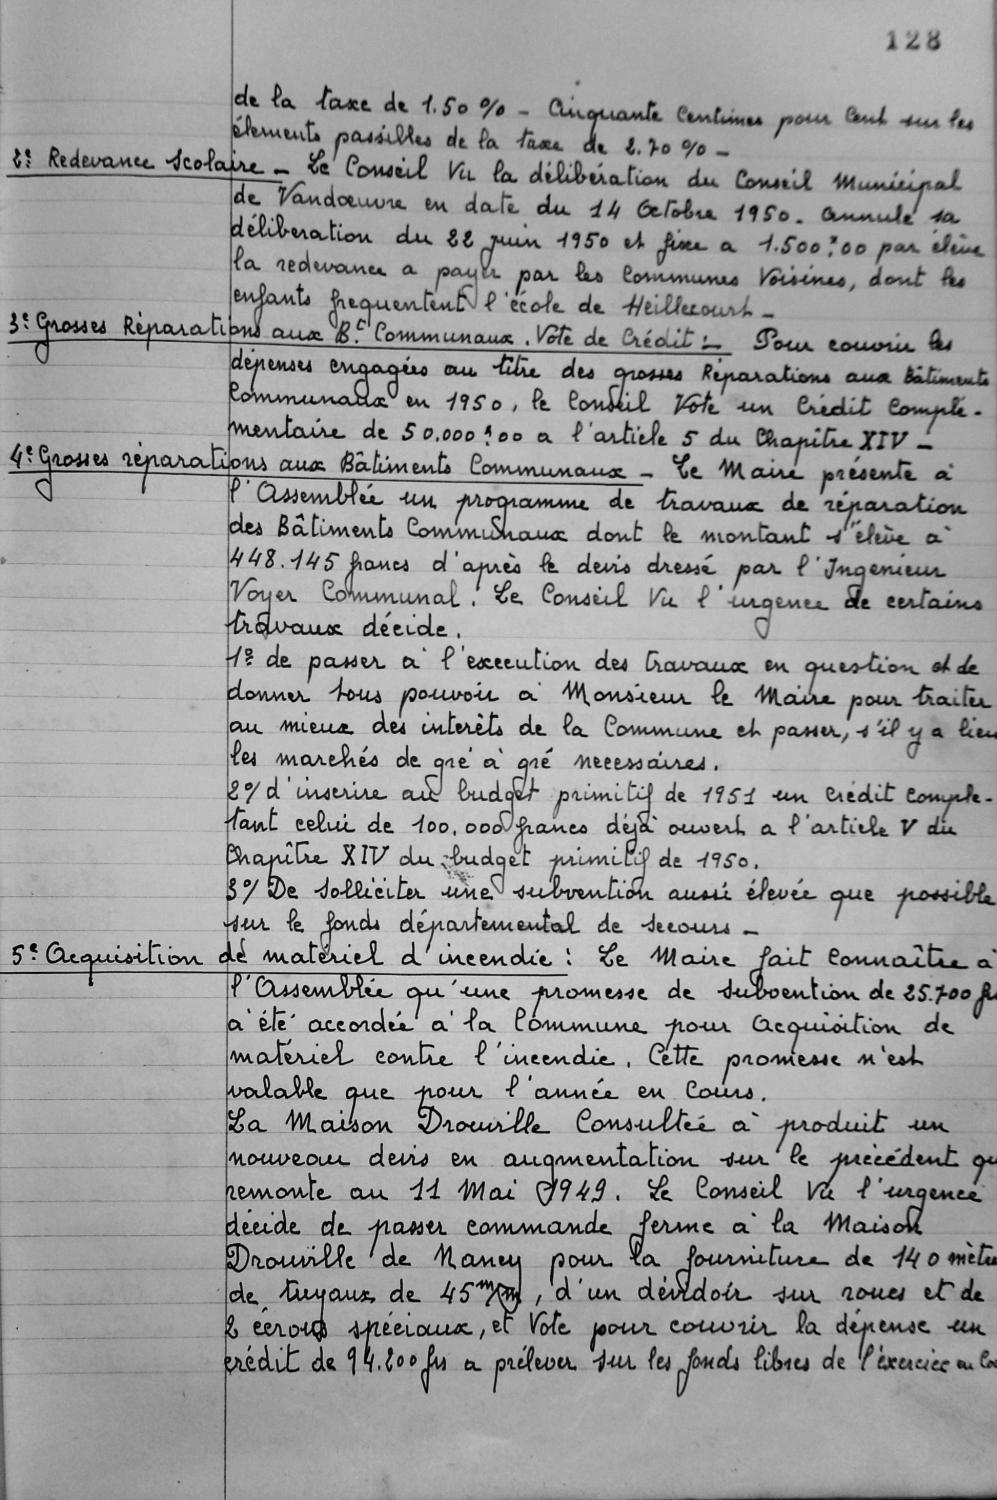 128
de la taxe de 1.50 % - Cinquante Centimes pour Cent sur les
élements passibles de la taxe de 2.70 % -
2º Redevance Scolaire - Le Conseil Vu la délibération du Conseil Municipal
de Vandœuvre en date du 14 Octobre 1950. annule sa
déliberation du 22 juin 1950 et fixe a 1.500 frs 00 par élève
la redevance a payer par les Communes Voisines, dont les
enfants frequentent l'école de Heillecourt -
3º Grosses Réparations aux Bts Communaux. Vote de Crédit : - Pour couvrir les
dépenses engagées au titre des grosses Réparations aux Bâtiments
Communaux en 1950, le Conseil Vote un Crédit Complé-
mentaire de 50.000 frs 00 a l'article 5 du Chapître XIV -
4º Grosses réparations aux Bâtiments Communaux - Le Maire présente à
l'Assemblée un programme de travaux de réparation
des Bâtiments Communaux dont le montant s'élève à
448.145 francs d'après le devis dressé par l'Ingenieur
Voyer Communal. Le Conseil Vu l'urgence de certains
travaux décide.
1º de passer à l'execution des travaux en question et de
donner tous pouvoir à Monsieur le Maire pour traiter
au mieux des interêts de la Commune et passer, s'il y a lieu
les marchés de gré à gré necessaires.
2º/ d'inscrire au budget primitif de 1951 un credit comple-
tant celui de 100.000 francs déjà ouvert a l'article V du
Chapître XIV du budget primitif de 1950.
3º/ De Solliciter une subvention aussi élevée que possible
sur le fonds départemental de secours -
5º Acquisition de matériel d'incendie : Le Maire fait Connaître à
l'Assemblée qu'une promesse de subvention de 25.700 frs
à été accordée à la Commune pour Acquisition de
matériel contre l'incendie. Cette promesse n'est
valable que pour l'année en Cours.
La Maison Drouville Consultée à produit un
nouveau devis en augmentation sur le précédent qui
remonte au 11 Mai 1949. Le Conseil Vu l'urgence
décide de passer commande ferme à la Maison
Drouville de Nancy pour la fourniture de 140 mètres
de tuyaux de 45 m/m, d'un dévidoir sur roues et de
2 écrous spéciaux, et Vote pour couvrir la dépense un
crédit de 94.200 frs a prélever sur les fonds libres de l'exercice en